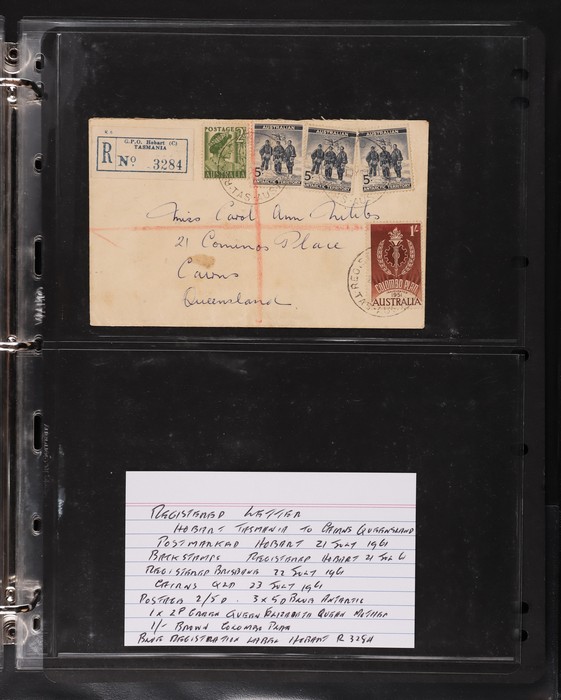 R.6.
G.P.O. Hobart (C)
TASMANIA
R No 3284
POSTAGE
AUSTRALIA
AUSTRALIAN
5D
ANTARCTIC TERRITORY
AUSTRALIAN
5D
ANTARCTIC TERRITORY
AUSTRALIAN
5D
ANTARCTIC TERRITORY
Miss Carol Ann
21 Cominos Place
Cairns
Queensland
1/-
COLOMBO PLAN
1951
AUSTRALIA
REGISTERED LETTER
HOBART TASMANIA TO CAIRNS QUEENSLAND
POSTMARKED HOBART 21 JULY 1961
BACKSTAMPS REGISTERED HOBART 21 JUL 61
REGISTERED BRISBANE 22 JULY 1961
CAIRNS QLD 23 JULY 1961
POSTAGE 2/5D. 3 x 5D BLUE ANTARTIC
1 x 2P GREEN QUEEN ELIZABETH QUEEN MOTHER
1/- BROWN COLOMBO PLAN
BLUE REGISTRATION LABEL HOBART R 3284